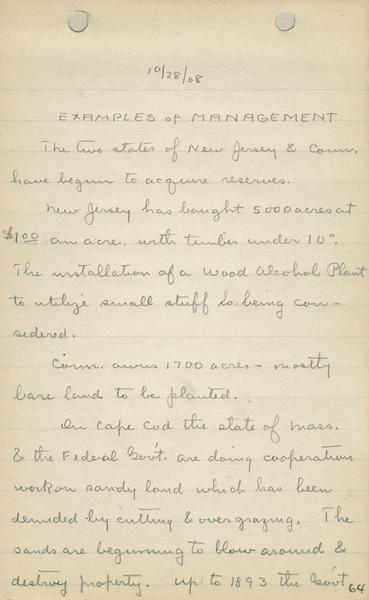 10/28/08
EXAMPLES of MANAGEMENT
The two states of New Jersey & Conn.
have begun to acquire reserves.
New Jersey has bought 5000 acres at
$1.00 an acre, with timber under 10".
The installation of a Wood Alcohol Plant
to utilize small stuff is being con-
sidered.
Conn. owns 1700 acres - mostly
bare land to be planted.
On Cape Cod the state of Mass.
& the Federal Gov't. are doing cooperation
work on sandy land which has been
denuded by cutting & over grazing. The
sands are beginning to blow around &
destroy property. Up to 1893 the Gov't
64